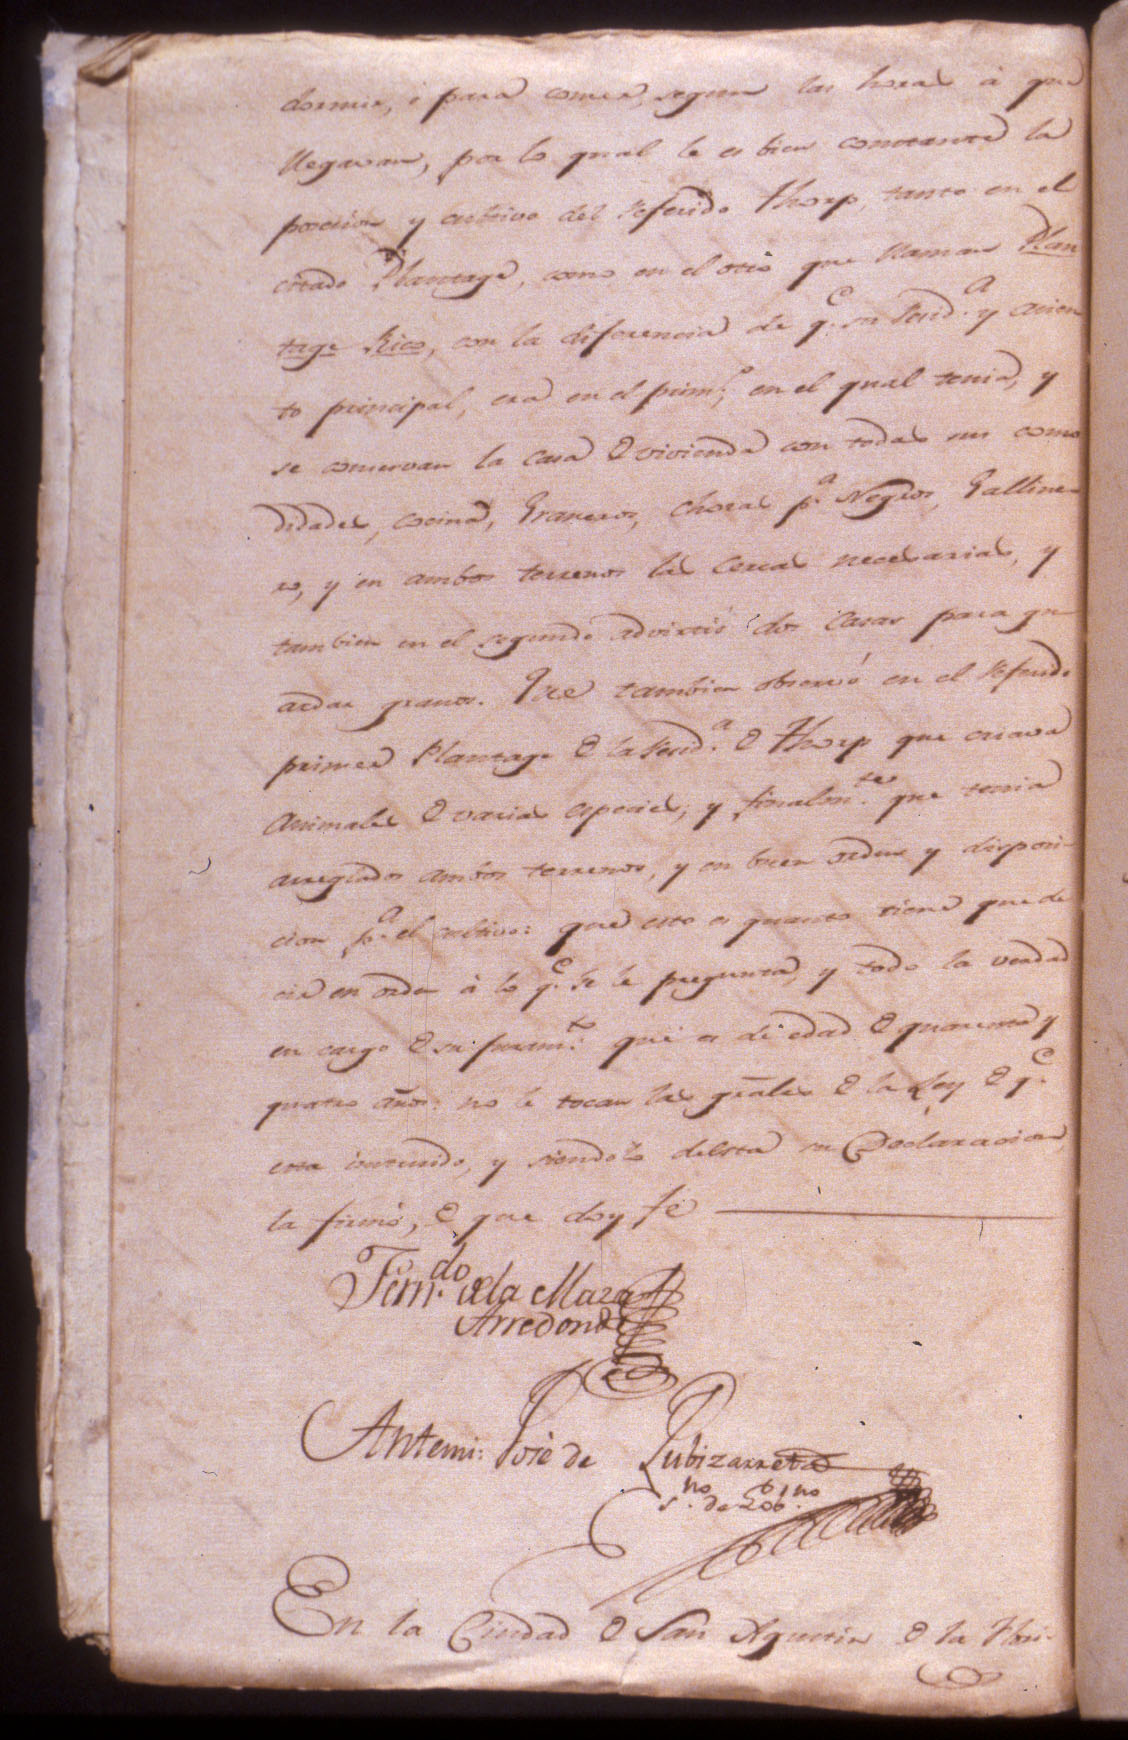 dormir, ó para comer, segun las horas á que
llegavan, por lo qual le es bien constante la
posecion y cultivo del referido Thorp, tanto en el
citado Plantage, como en el otro que llaman Plan
tage Rico, con la diferencia de q.e su resid.a y acien
to principal, era en el prim.o, en el qual tenia, y
se conservan la casa de vivienda con todas sus como
didades, cocina, Graneros, chozas p.a Negros, Galline-
ro, y en ambos terrenos las cercas necesarias, y
tambien en el segundo advirtió dos Casas para gu-
ardar granos. Que tambien observó en el referido
primer Plantage de la resid.a de Thorp que criava
Animales de varias especies, y finalm.te que tenia
arreglados ambos terrenos, y en buen orden y disposi-
cion p.a el cultivo: que esto es quanto tiene que de
cir en orden á lo q.e se le pregunta, y todo la verdad
en cargo de su juram.to que es de edad de quarenta y
quatro años: no le tocan las grales de la Ley de q.e
esta instruido, y siendole leida su Declaracion,
la firmó, de que doy fe
Fern.do de la Maza
Arredondo
Antemi: José de Zubizarreta
s.no de Gob.no
En la Ciudad de San Agustin de la Flori-